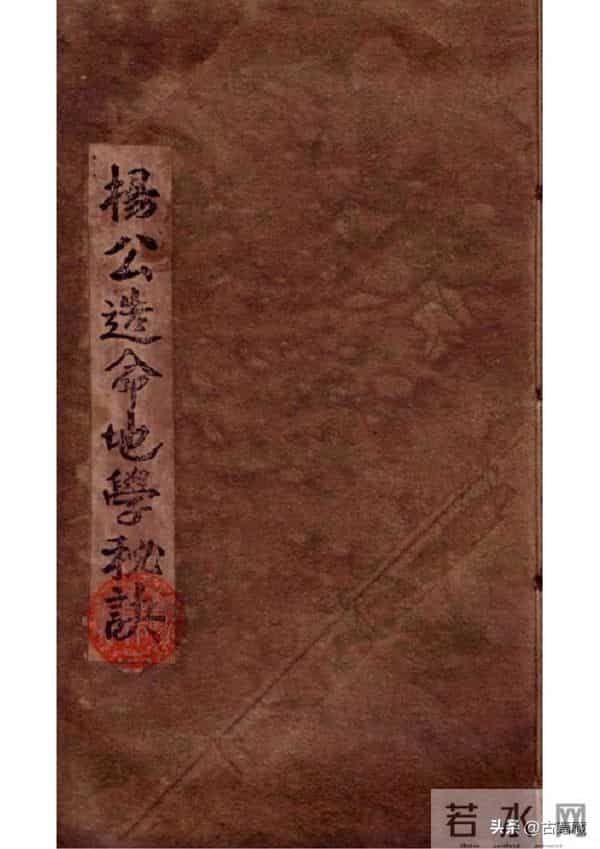 楊公造命地學秘訣
若水网
头条@古籍